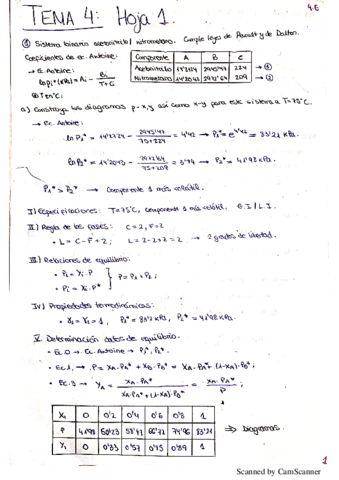 4.6
TEMA 4: Hoja 1.
① Sistema binario acetonitrilo/nitrometano. Cumple leyes de Raoult y de Dalton.
Coeficientes de ec. Antoine:
Componente A B C
Acetonitrilo 14'2724 2945'47 224 → ①
Nitrometano 14'2043 2972'64 209 → ②
• Ec. Antoine:
ln Pi* (kPa) = Ai - Bi / T+C
T en ºC;
a) Construya los diagramas p-x,y así como x-y para este sistema a T=75ºC.
→ Ec. Antoine:
ln P1* = 14'2724 - 2945'47 / 75+224 = 4'42 → P1* = e^4'42 = 83'21 kPa.
ln P2* = 14'2043 - 2972'64 / 75+209 = 3'74 → P2* = 41'98 kPa.
P1* > P2* → Componente 1 más volátil.
I) Especificaciones: T=75ºC, componente 1 más volátil.
II) Regla de las fases: C=2, F=2
• L = C-F+2; L = 2-2+2 = 2 → 2 grados de libertad.
III) Relaciones de equilibrio:
• Pi = yi · P
• Pi = xi · Pi*
P = P1 + P2;
IV) Propiedades termodinámicas:
• γ1 = γ2 = 1, P1* = 83'2 kPa, P2* = 41'98 kPa.
V. Determinación datos de equilibrio.
• Ec.0 → Ec. Antoine → P1*, P2*.
• Ec.1, → P = XA·PA* + XB·PB* = XA·PA* + (1-XA)·PB*;
• Ec.3 → YA = XA·PA* / XA·PA* + (1-XA)·PB* = XA·PA* / P;
X1 0 0'2 0'4 0'6 0'8 1
P 41'98 50'23 58'47 66'72 74'96 83'21
Y1 0 0'33 0'57 0'75 0'89 1
⇒ Diagramas.
1
Scanned by CamScanner